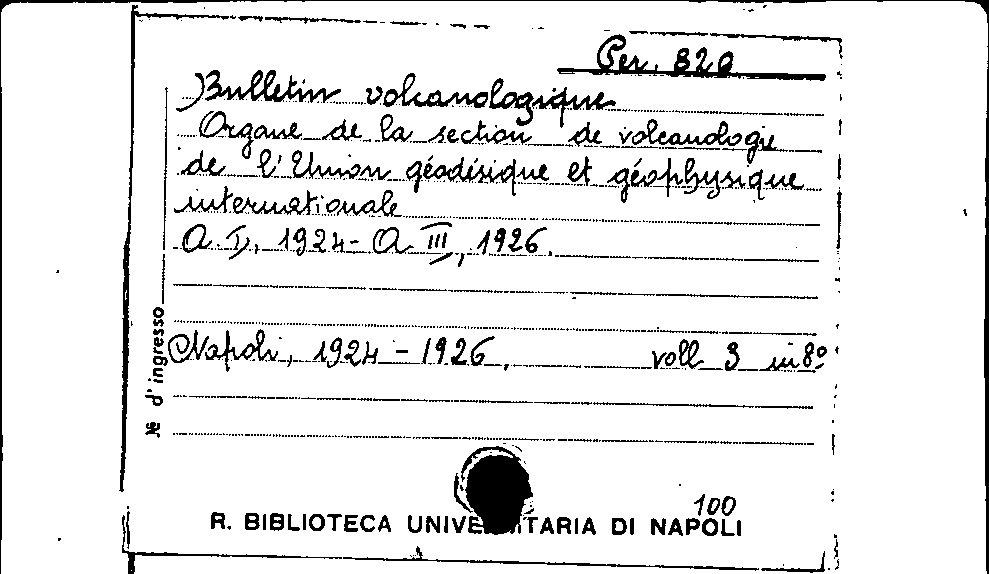 Per. 820
Bulletin volcanologique
Organe de la section de volcanologie
de l'Union géodésique et géophysique
internationale
A. I, 1924 - A. III, 1926.
Napoli, 1924 - 1926. voll. 3 in 8º
№ d'ingresso
100
R. BIBLIOTECA UNIVERSITARIA DI NAPOLI